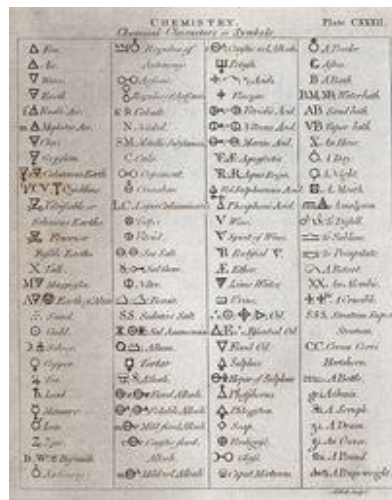 CHEMISTRY. Plate CXXXII.
Chemical Characters or Symbols
Fire.
Air.
Water.
Earth.
Fixable Air.
Mephitic Air.
Clay.
Gypsum.
Calcareous Earth
Quicklime.
Vitrifiable or
Siliceous Earths.
Fluors or
Fusible Earths.
X Talk.
M Magnesia.
Earth of Alum
Sand.
Gold.
Silver.
Copper.
Tin.
Lead.
Mercury.
Iron.
Zinc.
B. W. Bismuth
Antimony.
Regulus of
Antimony
Arsenic.
Regulus of Arsenic
K Cobalt.
N Nickel.
S.M. Metallic Substances
C Calx.
Orpiment.
Cinnabar.
L.C. Lapis Calaminaris
Tutty.
Vitriol.
Sea Salt.
Sal Gem.
Nitre.
Borax.
S.S. Sedative Salt.
Sal Ammoniac
Alum.
Tartar
Alkali.
Fixed Alkali.
Volatile Alkali.
Mild fixed Alkali
Caustic fixed
Alkali.
Mild vol. Alkali
Caustic vol. Alkali.
Potash.
Acids.
Vinegar.
Vitriolic Acid
Nitrous Acid
Marine Acid
Aqua fortis
Aqua Regia.
Vol. Sulphureous Acid
Phosphoric Acid
V Wine.
Spirit of Wine.
Rectified
Æ Ether.
Lime Water.
Urine.
Oil.
Essential Oil.
Fixed Oil.
Sulphur.
Hepar of Sulphur
Phosphorus.
Phlogiston.
Soap.
Verdigris.
Glass.
Caput Mortuum.
A Powder.
Ashes.
B A Bath.
B.M. Water bath.
AB Sand bath.
VB Vapor bath.
An Hour.
A Day.
A Night.
A Month.
Amalgam.
To Distill.
To Sublime.
To Precipitate.
A Retort.
XX An Alembic.
A Crucible.
S.S.S. Stratum Super
Stratum.
C.C. Cornu Cervi
Hartshorn.
A Bottle.
A Grain.
A Scruple.
A Dram.
An Ounce.
A Pound.
A Pennyweight.